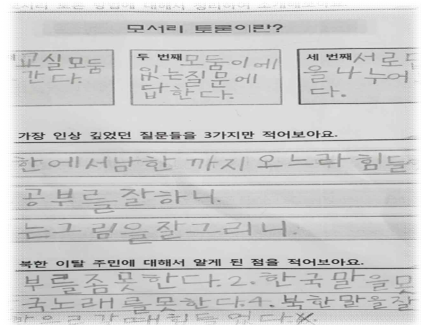 모서리 토론이란?
교실모둥
간다.
두 번째 모둥이에
있는질문에
답한다.
세 번째 서로
을 나누어
다.
가장 인상 깊었던 질문들을 3가지만 적어보아요.
한에서남한 까지 오느라 힘들
공부를잘하니.
는그림을잘그리니.
북한 이탈 주민에 대해서 알게 된 점을 적어보아요.
부를좀못한다. 2. 한국말을
국노래를못한다. 4. 북한말을잘